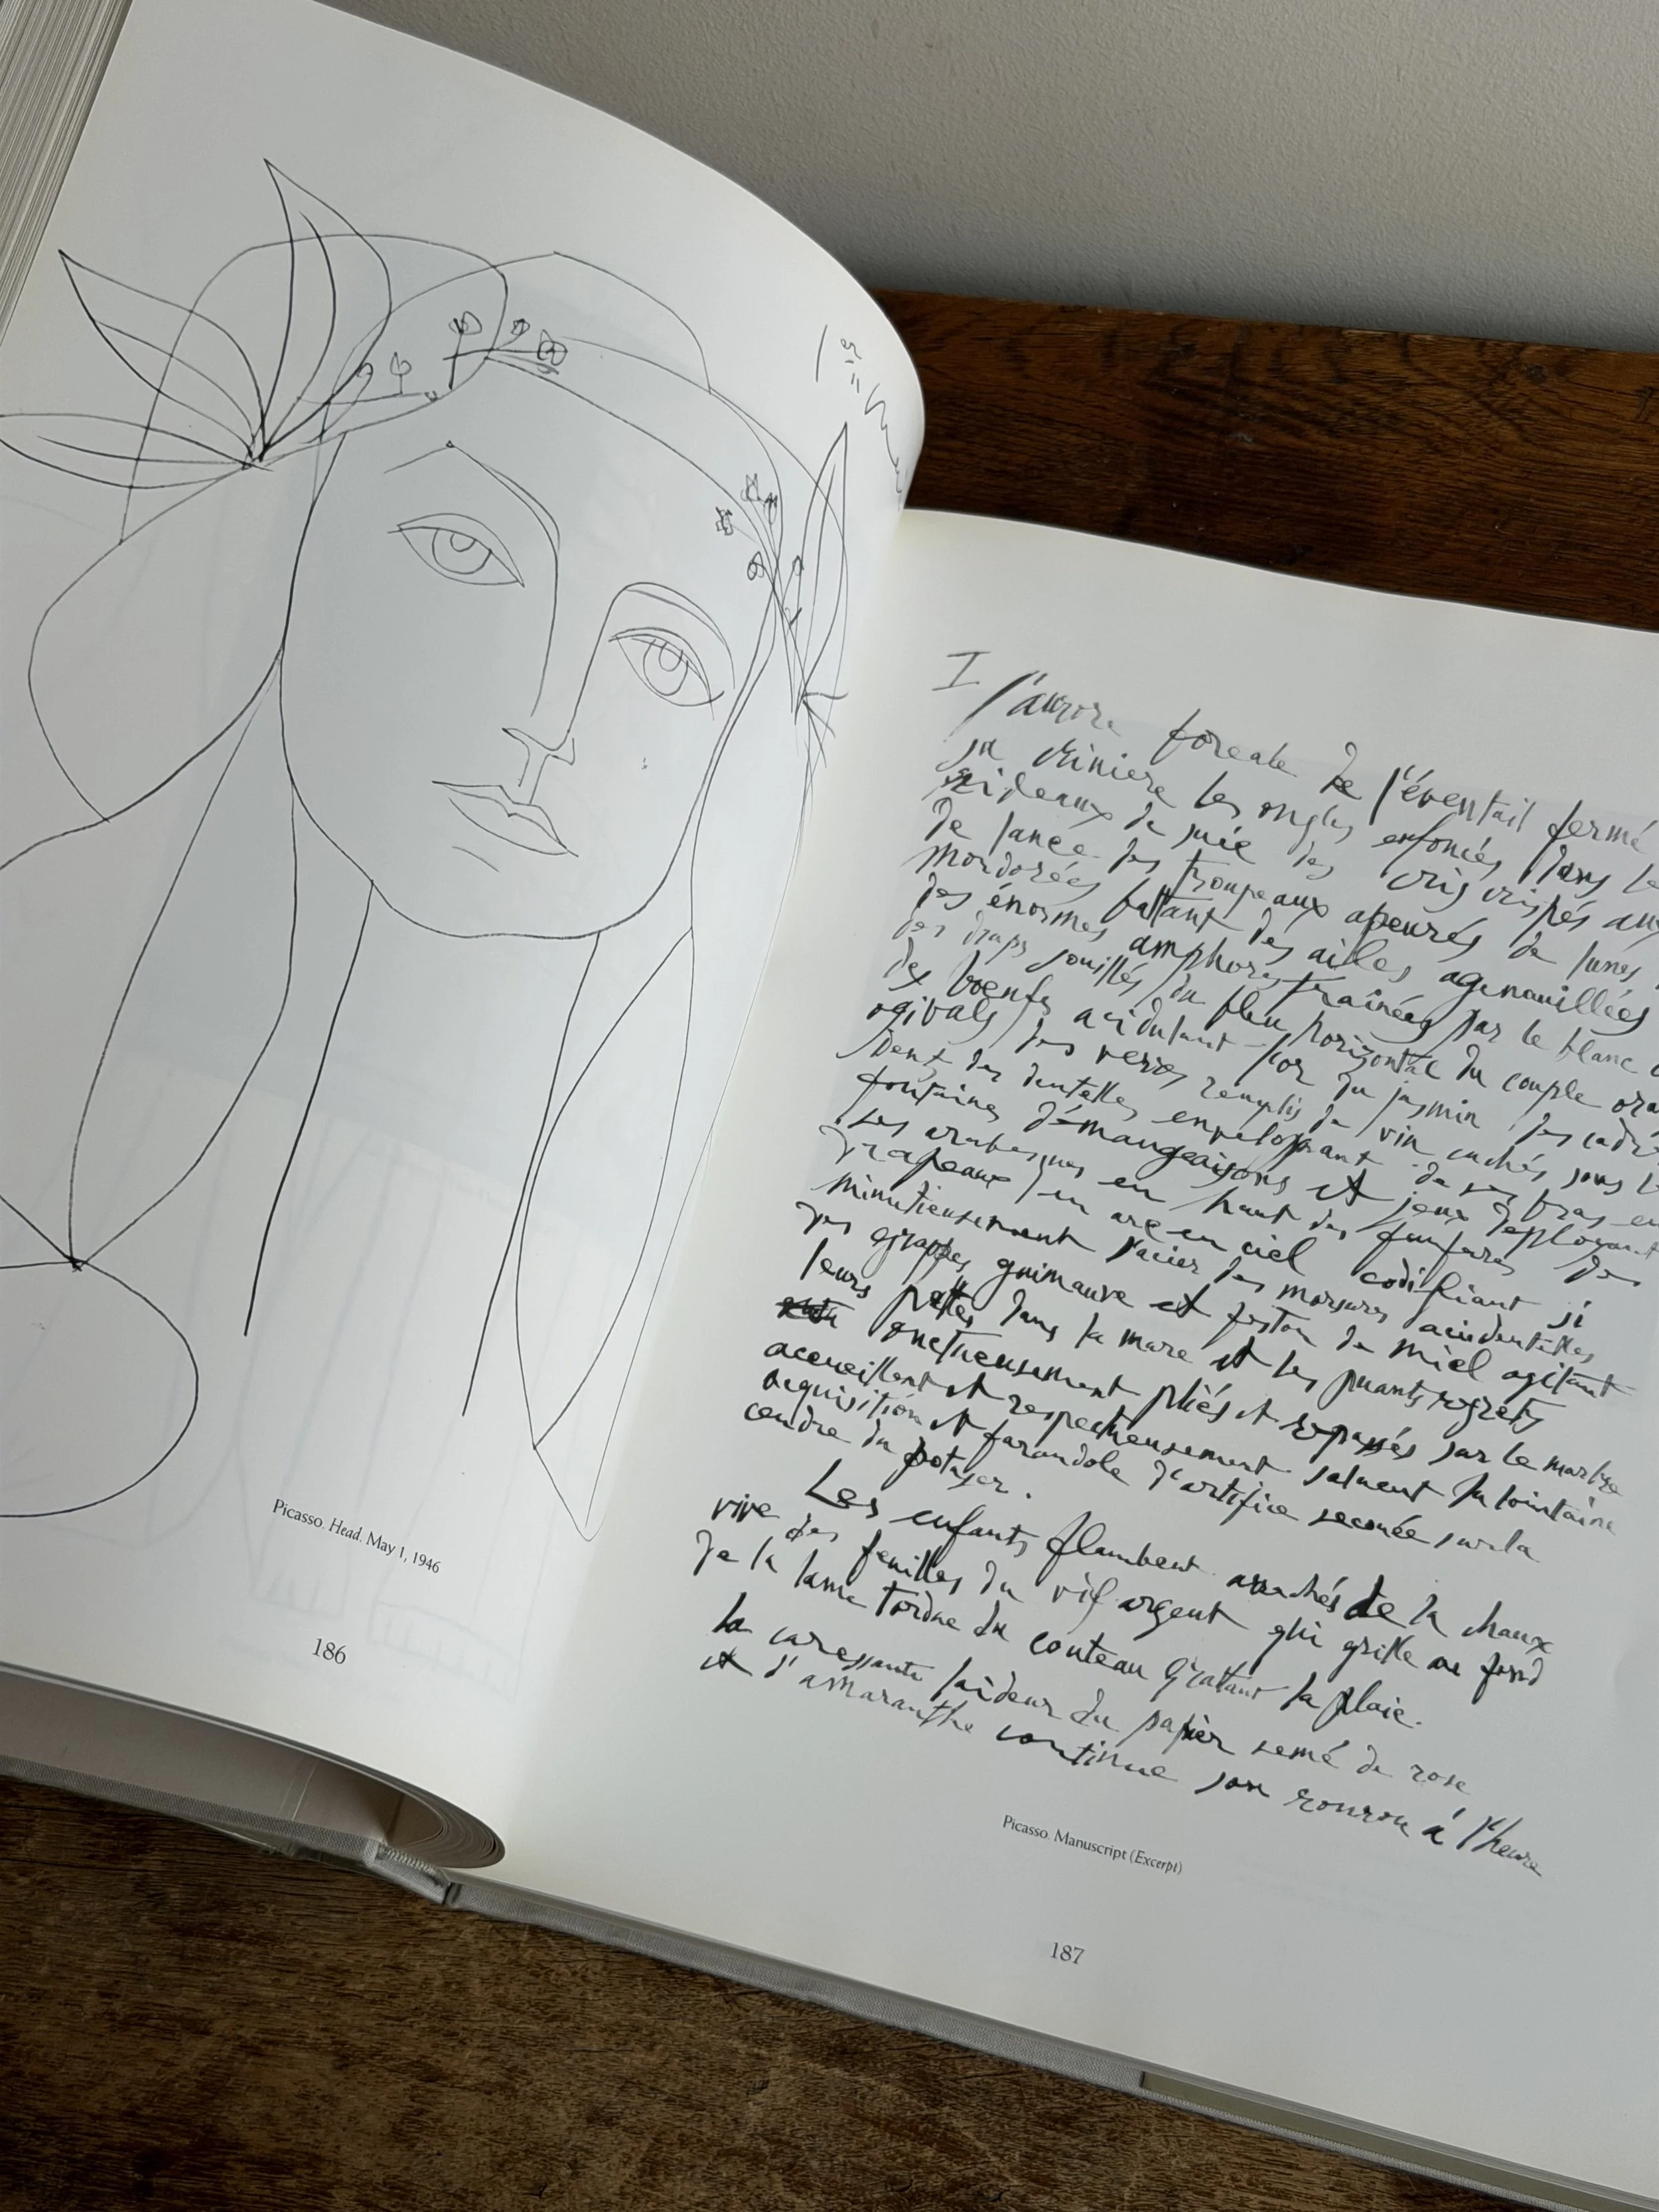 Picasso. Head. May 1, 1946
186
I l'aurore boréale de l'éventail fermé
sa crinière les ongles enfoncés dans le
rideaux de suie des cris crispés aux
de lancé des troupeaux apeurés de lunes
mordorées battant des ailes agenouillées
des énormes amphores traînées par le blanc
des draps souillés du bleu horizontal du couple
des boeufs acidulant l'or du jasmin des
ogivals des verres remplis de vin cachés sous
dents des dentelles enveloppant de ses bras en
fontaines démangeaisons et jeux déployant
les arabesques en haut des fanfares des
drapeaux en arc en ciel codifiant si
minutieusement l'acier des morsures accidentelles
des grappes guimauve et feston de miel agitant
leurs pattes dans la mare et les puants regrets
onctueusement pliés et repassés sur le marbre
accueillent et respectueusement saluent la lointaine
acquisition et farandole d'artifice secouée sur la
cendre du potager.
Les enfants flambent arrachés de la chaux
vive des feuilles du vif argent qui grille au fond
de la lame tordue du couteau gratant la plaie.
la caressante laideur du papier semé de rose
et d'amaranthe continue son ronron à l'heure
Picasso. Manuscript (Excerpt)
187